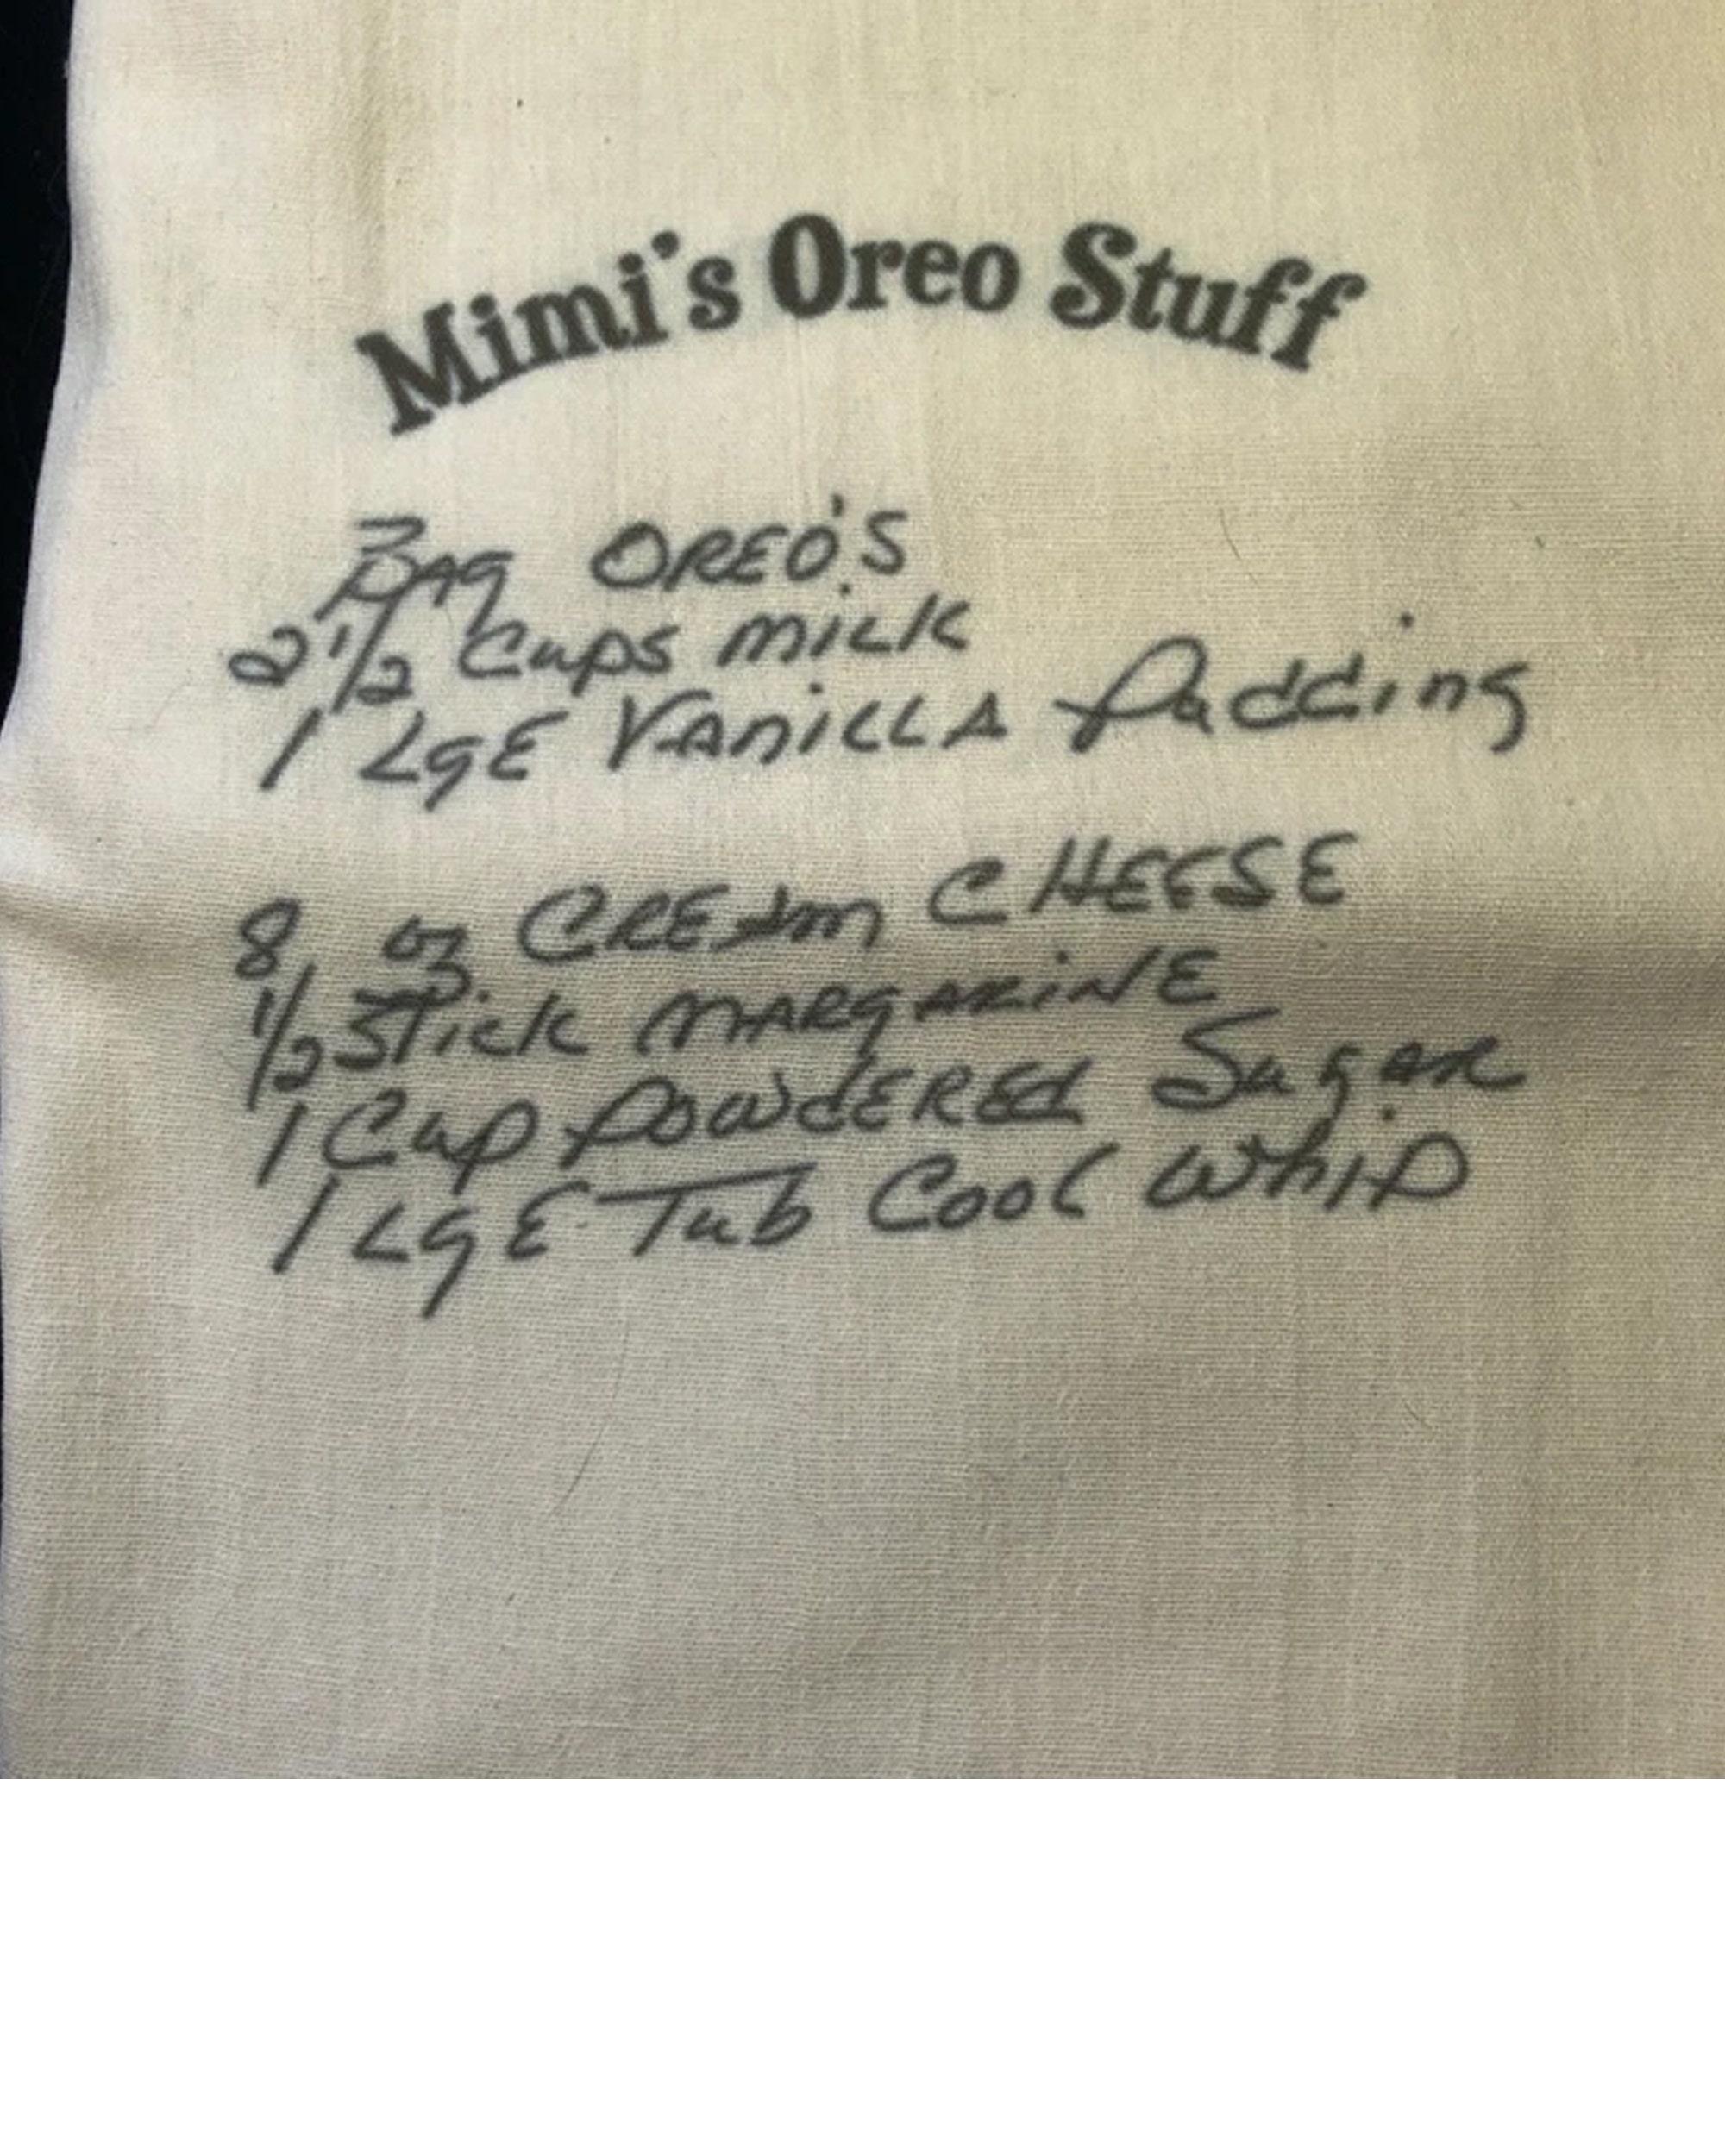 Mimi's Oreo Stuff
Bag OREO'S
2 1/2 Cups milk
1 LgE VAniLLA Pudding
8 oz CREAm CHEESE
1/2 Stick mARgARiNE
1 Cup PowdEREd Sugar
1 LgE Tub Cool Whip